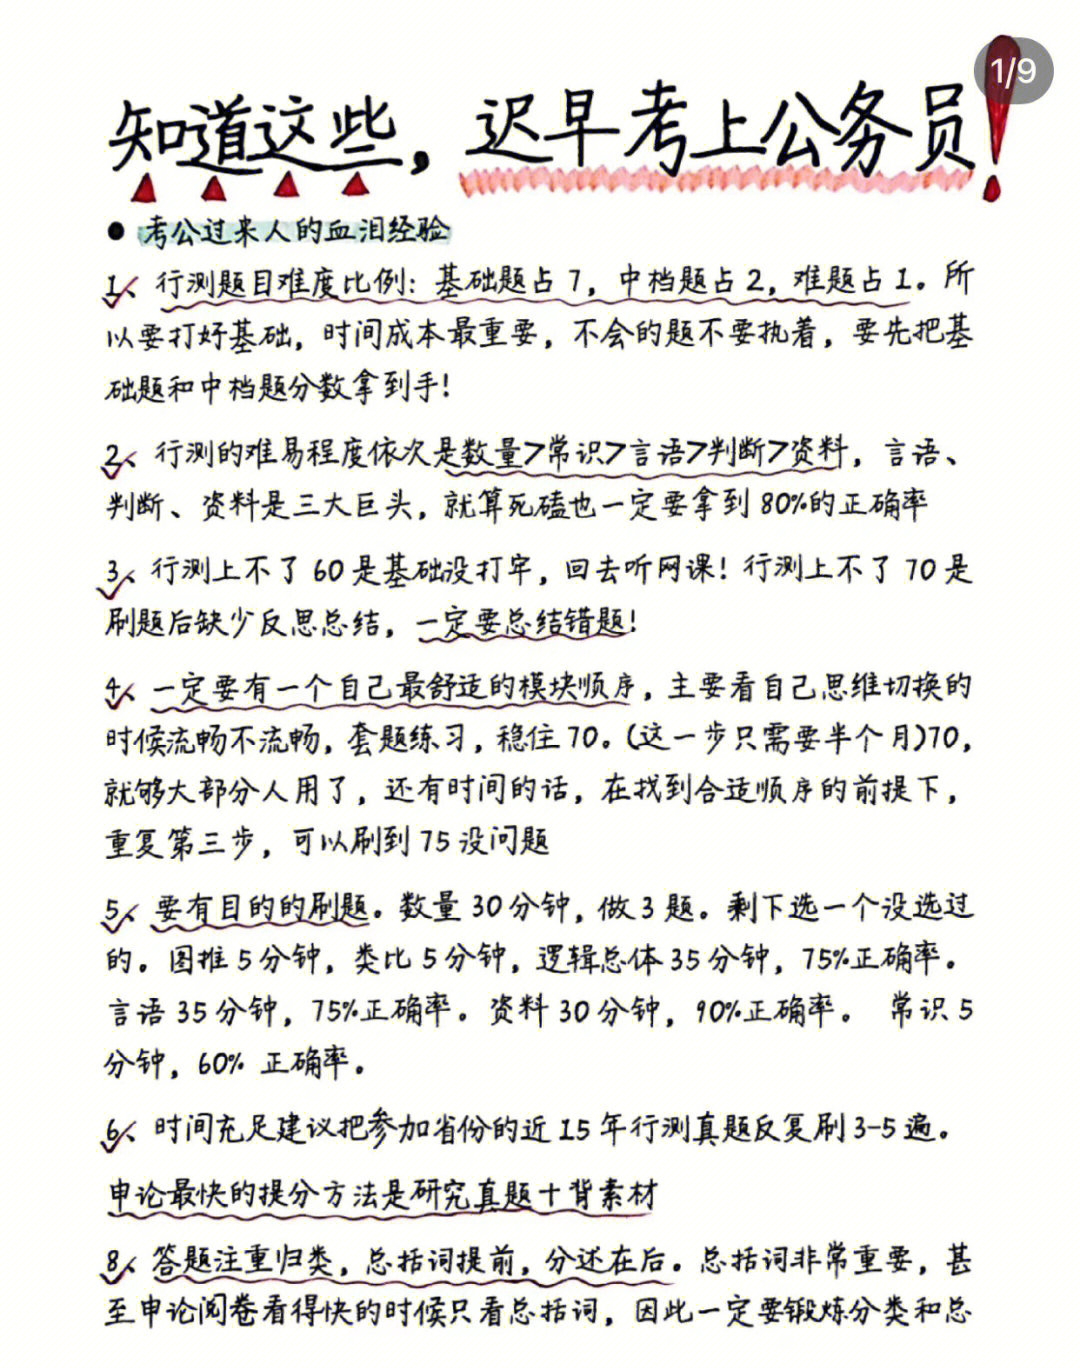 1/9
知道这些，迟早考上公务员！
● 考公过来人的血泪经验
1、行测题目难度比例：基础题占7，中档题占2，难题占1。所
以要打好基础，时间成本最重要，不会的题不要执着，要先把基
础题和中档题分数拿到手！
2、行测的难易程度依次是数量>常识>言语>判断>资料，言语、
判断、资料是三大巨头，就算死磕也一定要拿到80%的正确率
3、行测上不了60是基础没打牢，回去听网课！行测上不了70是
刷题后缺少反思总结，一定要总结错题！
4、一定要有一个自己最舒适的模块顺序，主要看自己思维切换的
时候流畅不流畅，套题练习，稳住70。(这一步只需要半个月)70，
就够大部分人用了，还有时间的话，在找到合适顺序的前提下，
重复第三步，可以刷到75没问题
5、要有目的的刷题。数量30分钟，做3题。剩下选一个没选过
的。图推5分钟，类比5分钟，逻辑总体35分钟，75%正确率。
言语35分钟，75%正确率。资料30分钟，90%正确率。 常识5
分钟，60% 正确率。
6、时间充足建议把参加省份的近15年行测真题反复刷3-5遍。
申论最快的提分方法是研究真题十背素材
8、答题注重归类，总括词提前，分述在后。总括词非常重要，甚
至申论阅卷看得快的时候只看总括词，因此一定要锻炼分类和总